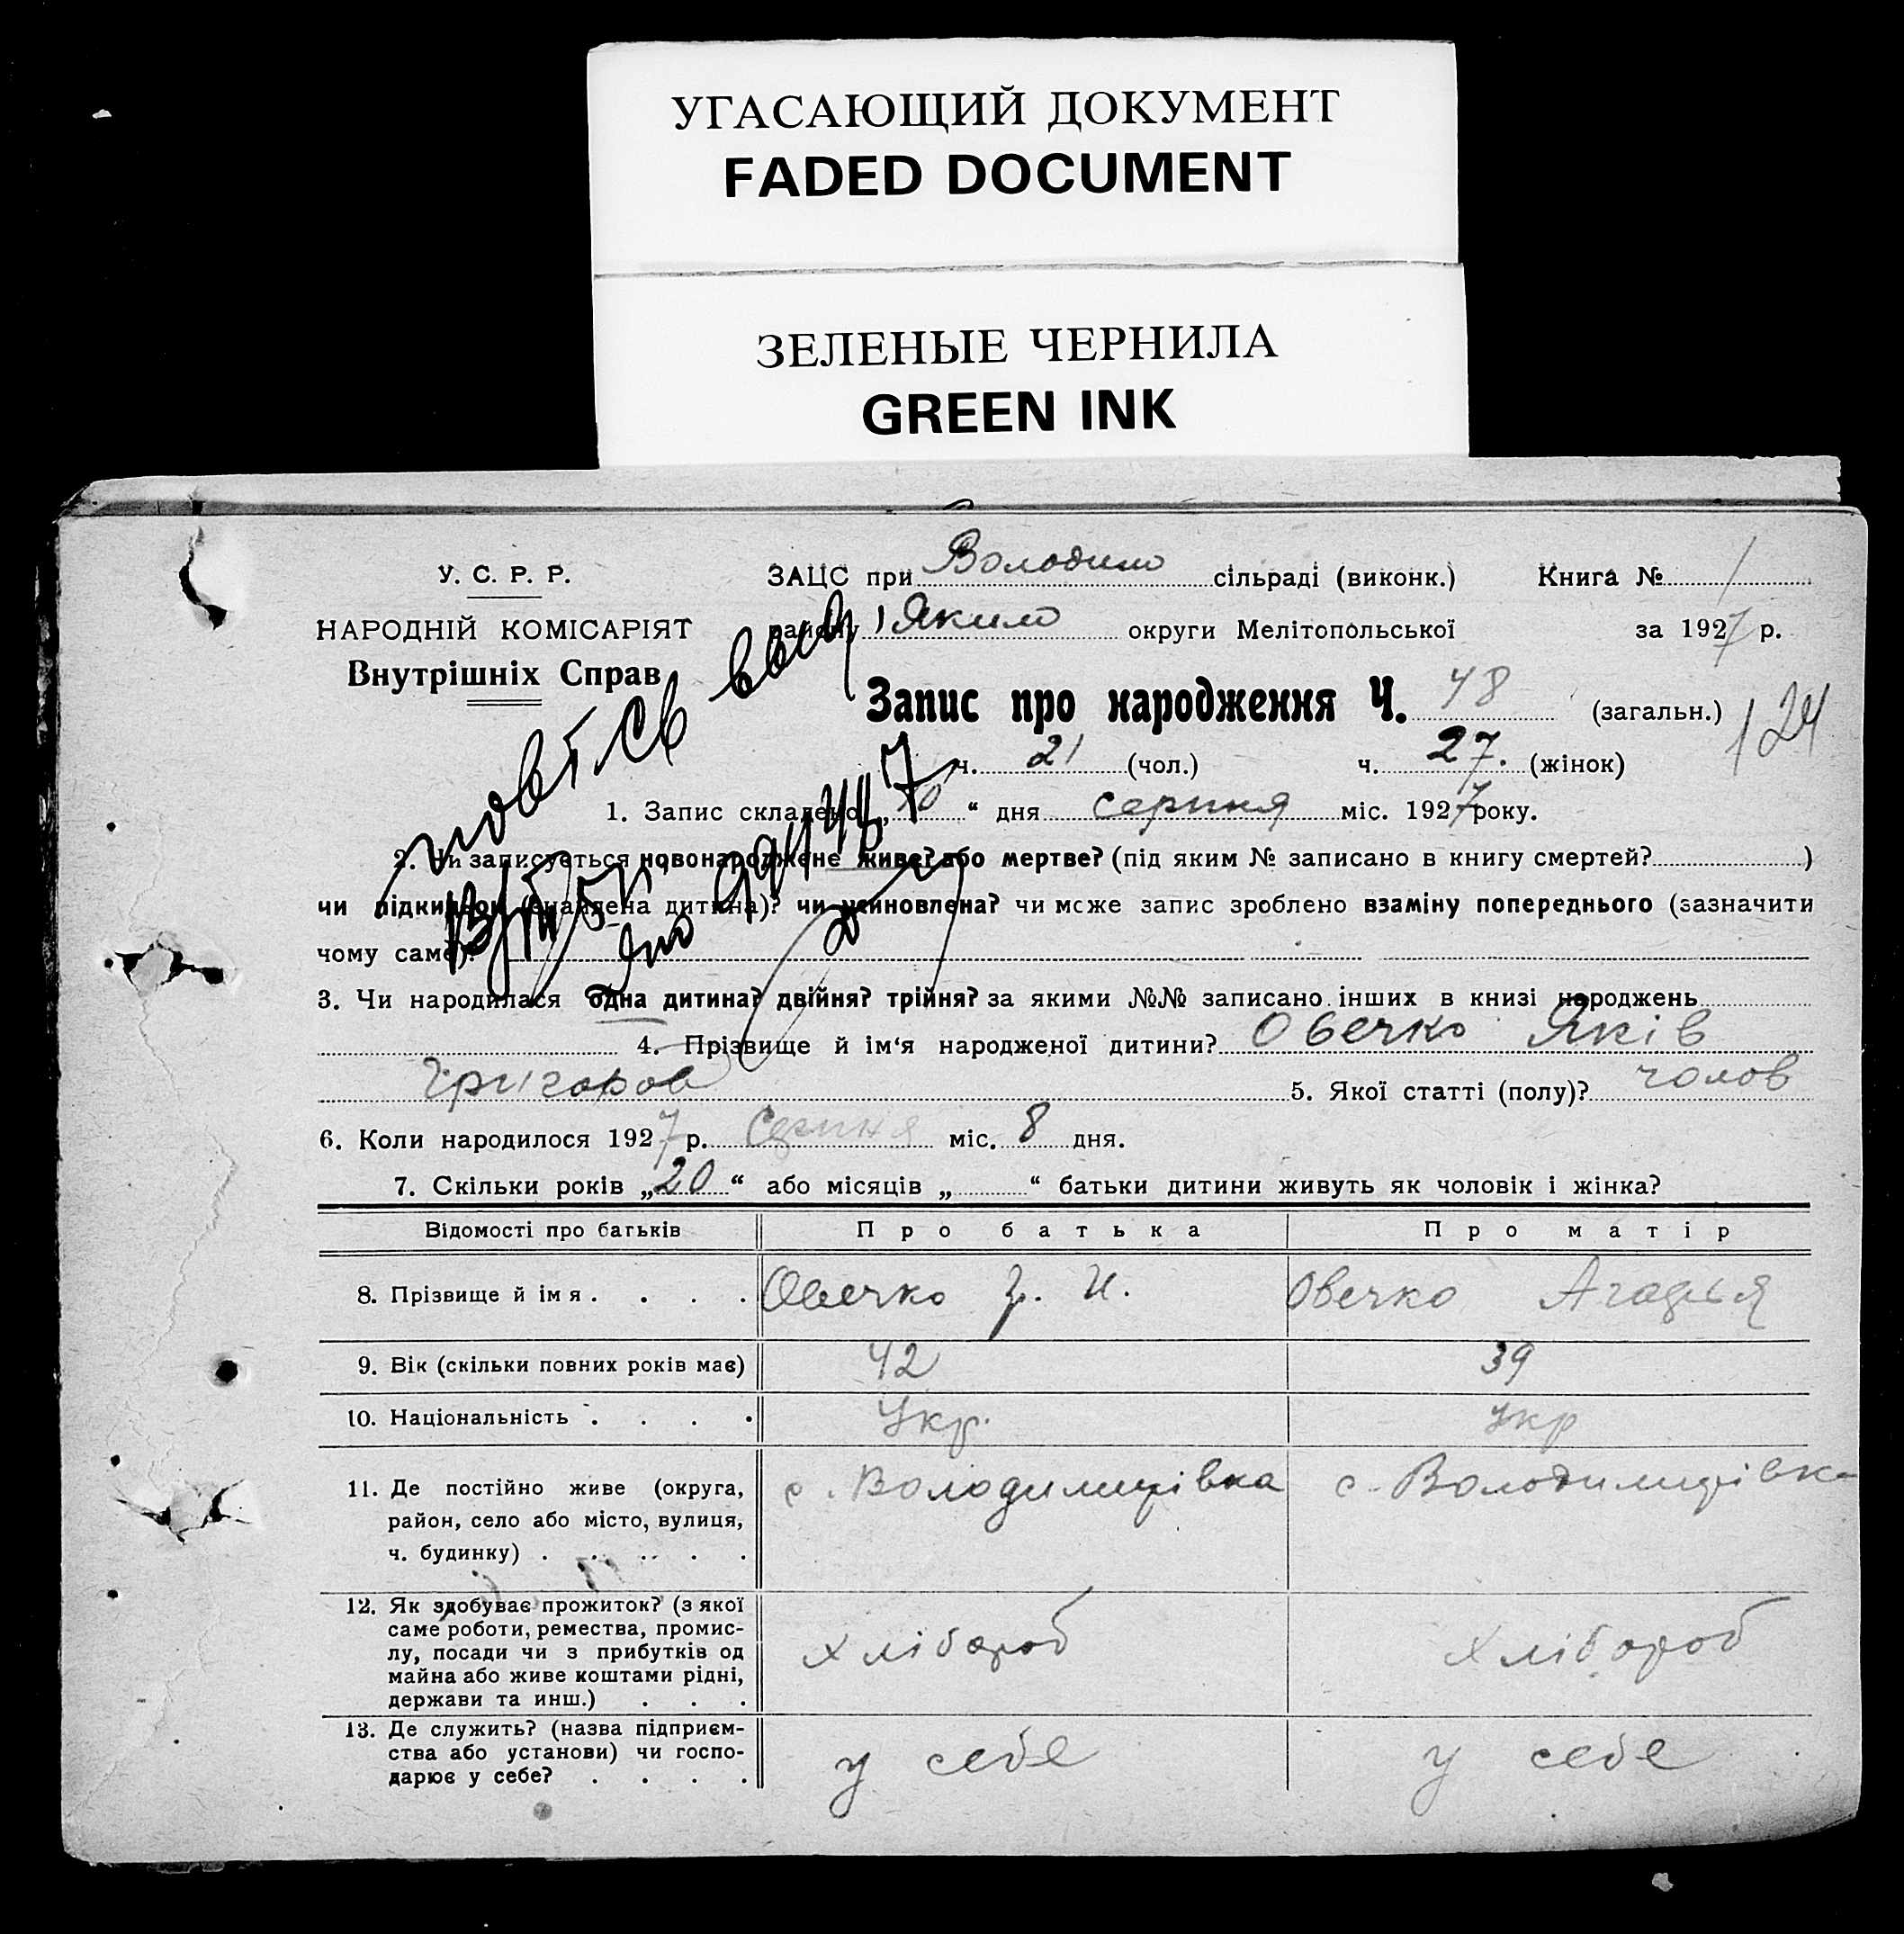 УГАСАЮЩИЙ ДОКУМЕНТ
FADED DOCUMENT
ЗЕЛЕНЫЕ ЧЕРНИЛА
GREEN INK
У. С. Р. Р.
НАРОДНІЙ КОМІСАРІЯТ
Внутрішніх Справ
ЗАЦС при Володим сільраді (виконк.) Книга № 1
району Яким округи Мелітопольської за 1927 р.
Запис про народження Ч. 48 (загальн.) 124
ч. 21 (чол.) ч. 27. (жінок)
1. Запис складено „10“ дня серпня міс. 1927 року.
2. Чи записується новонароджене живе? або мертве? (під яким № записано в книгу смертей? )
чи підкидьок (знайдена дитина)? чи усиновлена? чи може запис зроблено взаміну попереднього (зазначити
чому саме)?
3. Чи народилася одна дитина? двійня? трійня? за якими №№ записано інших в книзі народжень
4. Прізвище й ім‘я народженої дитини? Овечко Яків
Григоров 5. Якої статті (полу)? чолов
6. Коли народилося 1927 р. Серпня міс. 8 дня.
7. Скільки років „20“ або місяців „ “ батьки дитини живуть як чоловік і жінка?
Відомості про батьків Про батька Про матір
8. Прізвище й імя . . . . Овечко Гр. И. Овечко Агафья
9. Вік (скільки повних років має) 42 39
10. Національність . . . . Укр. Укр
11. Де постійно живе (округа, с. Володимирівка с. Володимирівка
район, село або місто, вулиця,
ч. будинку) . . . . .
12. Як здобуває прожиток? (з якої
саме роботи, ремества, промис-
лу, посади чи з прибутків од хлібороб хлібороб
майна або живе коштами рідні,
держави та инш.) . . .
13. Де служить? (назва підприєм-
ства або установи) чи госпо- у себе у себе
дарює у себе? . . . .